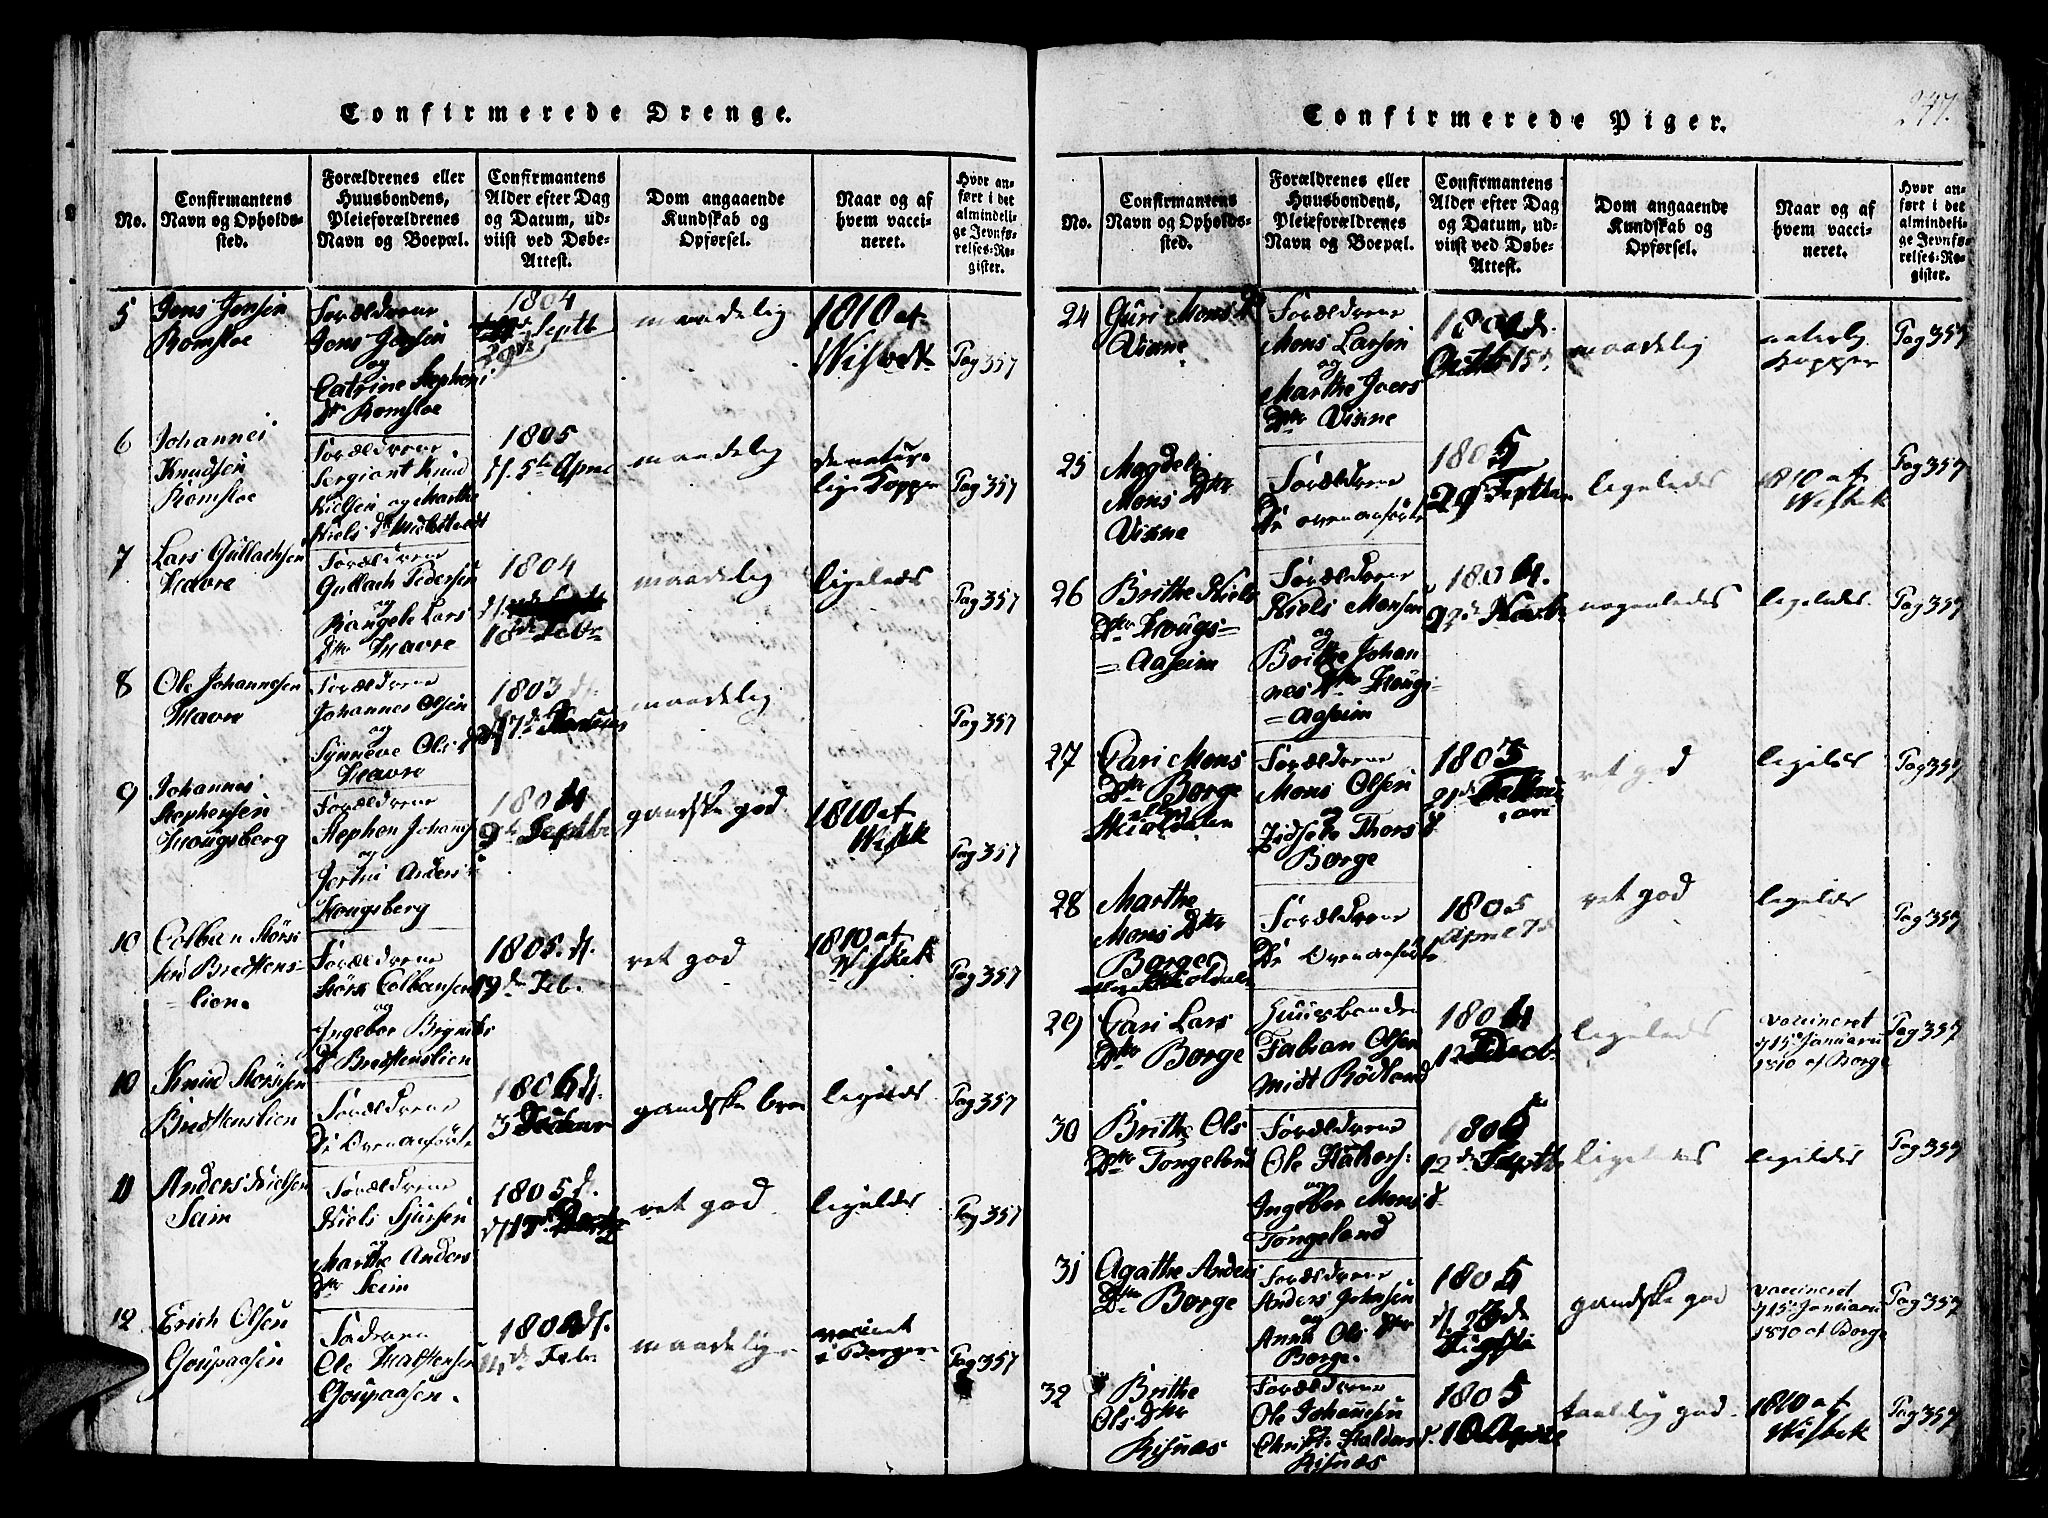 Confirmerede Drenge.
No.
Confirmantens
Navn og Opholds-
sted.
Forældrenes eller
Huusbondens,
Pleieforældrenes
Navn og Boepæl.
Confirmantens
Alder efter Dag
og Datum, ud-
viist ved Døbe-
Attest.
Dom angaaende
Kundskab og
Opførsel.
Naar og af
hvem vacci-
neret.
Hvor an-
ført i det
almindeli-
ge Jevnfø-
relses-Re-
gister.
5
Jens Jensen
Romsloe
Forældrene
Jens Jensen
og
Catrine Stephens
Dtr Romsloe
1804
29de Septb
maadelig
1810 af
Wisbek
Pag 357
6
Johannes
Knudsen
Romsloe
Forældrene
Sergiant Knud
Nielsen og Marthe
Niels Dr
1805
d. 5te April
maadelig
de natur-
lige Kopper
Pag 357
7
Lars Gullachsen
Havre
Forældrene
Gullach Pedersen
og
Rangele Lars
Dtr Havre
1804
10de Febr
maadelig
ligeleds
Pag 357
8
Ole Johannesen
Havre
Forældrene
Johannes Olsen
og
Synneve Ols D
Havre
1803 d.
maadelig
Pag 357
9
Johannes
Stephensen
Hougsberg
Forældrene
Stephen Johans
og
Anders
Hougsberg
1804
9de Septb
gandske god
1810 af
Wisbek
Pag 357
10
Colben Störs
sen Bredtens-
-lien.
Forældrene
Störs Colbensen
og
Ingebor
Dr Bredtenslien
1805. d.
19de Feb.
ret god
1810 af
Wisbek
Pag 357
10
Knud Störssen
Bredtenslien
Forældrene
De Ovenanførte
1806 d.
gandske bra
ligeleds
Pag 357
11
Anders Nielsen
Seim
Forældrene
Niels Sjursen
og
Marthe Anders
Dtr Seim
1805 d.
ret god
ligeledes
Pag 357
12
Erich Olsen
Goupaasen
Forældrene
Ole Halstensen
Goupaasen.
1804 d.
14de Feb.
maadelig
vaccinert
i Bergen
Pag 357
Confirmerede Piger.
247.
No.
Confirmantens
Navn og Opholds-
sted.
Forældrenes eller
Huusbondens,
Pleieforældrenes
Navn og Boepæl.
Confirmantens
Alder efter Dag
og Datum, ud-
viist ved Døbe-
Attest.
Dom angaaende
Kundskab og
Opførsel.
Naar og af
hvem vacci-
neret.
Hvor an-
ført i det
almindeli-
ge Jevnfø-
relses-Re-
gister.
24
Guri Mons D
Vinne
Forældrene
Mons Larsen
og
Marthe Joers
Dtr Vinne
maadelig
naturlig
Kopper
Pag 357
25
Magdeli
Mons Dtr
Vinne
Forældrene
De ovenanførte
1805
29 Septbr
ligeleds
1810 af
Wisbek
Pag 357
26
Brithe Niels
Dtr Hougs-
-Aaseim
Forældrene
Niels Monsen
og
Brithe Johan
nes Dtr Hougs-
-Aaseim
1804.
nogenledes
ligeledes.
Pag 357
27
Cari Mons
Dtr Borge
Forældrene
Mons Olsen
og
Zidsele Thors D
Borge
1803
ret god
ligeleds
Pag 357
28
Marthe
Mons Dtr
Borge
Forældrene
De Ovenanførte
1805
April 7de
ret god
ligeleds
Pag 357
29
Cari Lars
Dtr Borge
Huusbonden
Fabian Olsen
Midt Rödland
1804
12 Decb.
ligeleds
vaccineret
d 15 Januarii
1810 af Borge
Pag 357
30
Brithe Ols
Dtr Tongeland
Forældrene
Ole
og
Ingebor Mons D.
Tongeland
1805
12de Septb
ligeledes
ligeledes
Pag 357
31
Agathe Anders
Dtr Borge
Forældrene
Anders Johnsen
og
Anna Ols Dtr
Borge.
1805
gandske god
vaccineret
d 15 Januarii
1810 af Borge
Pag 357
32
Brithe
Ols Dtr
Risnæs
Forældrene
Ole Johannesen
Christi Halders D.
Risnæs
1805
10 April
taalelig god
1810 af
Wisbek
Pag 357